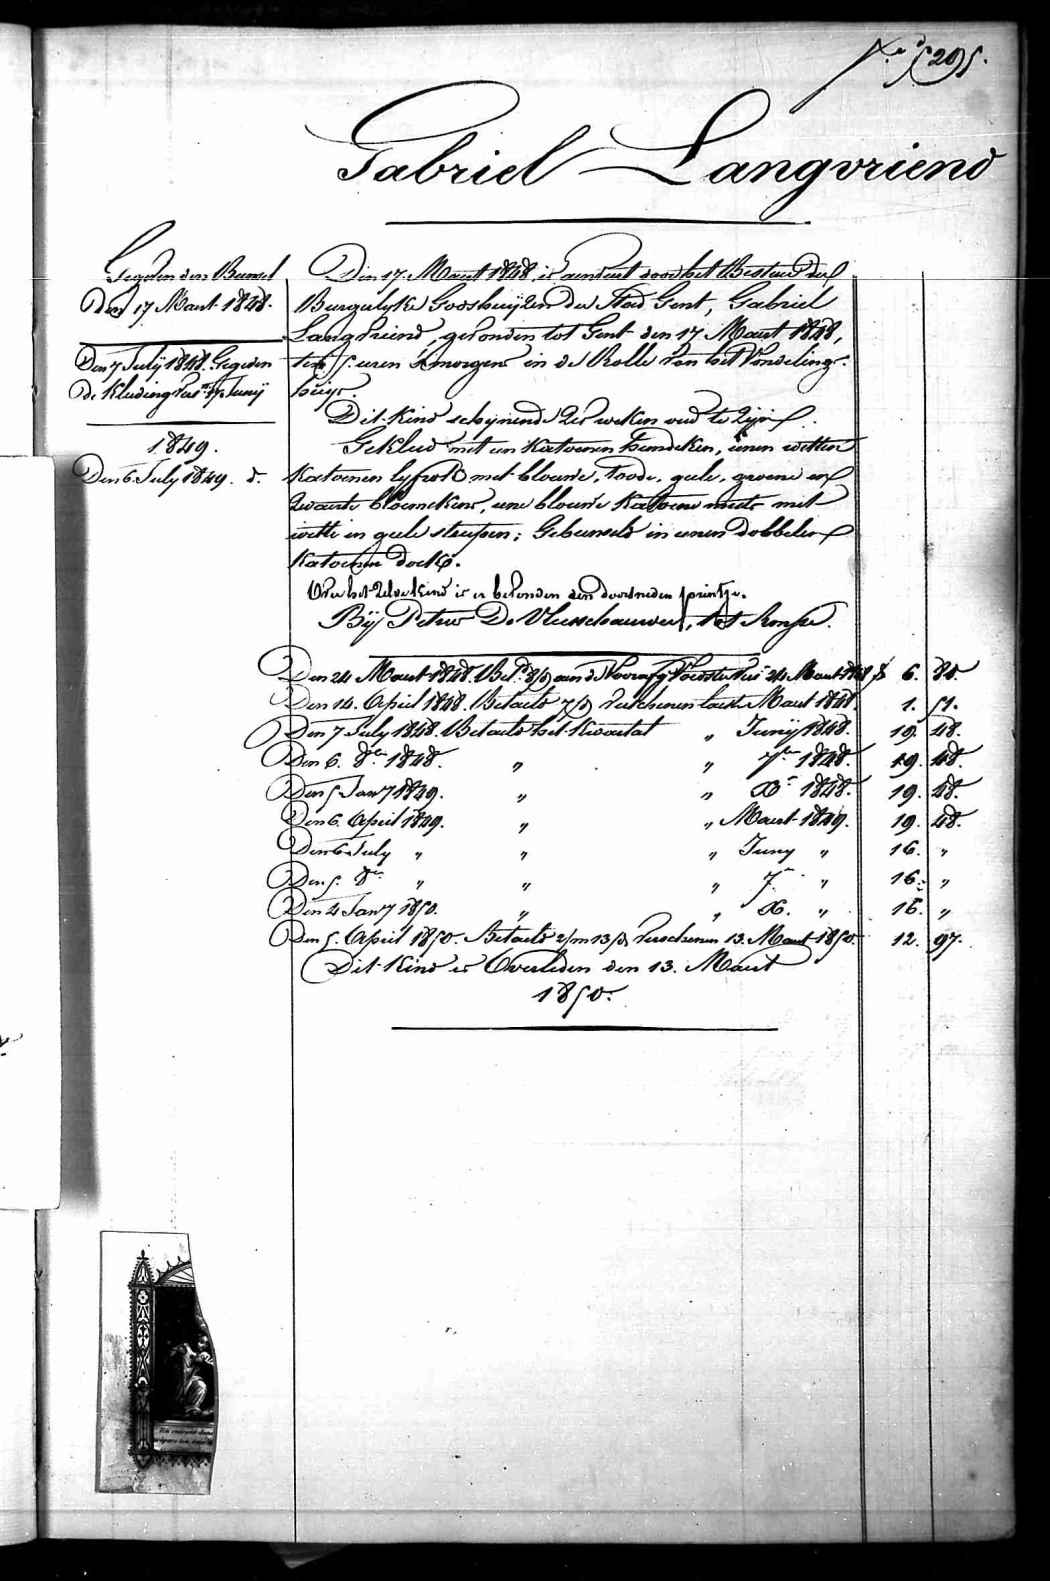 N.o 5295.
Gabriel Langvriend
Gegeven den Bunsel
Den 17 Maart 1848.
Den 7 Julÿ 1848. Gegeven
de Kleding van Junÿ
1849.
Den 6. July 1849. d.
Den 17. Maart 1848, is aenveert door het Bestuer der
Burgerlyke Godshuyzen der Stad Gent, Gabriel
Langvriend, gevonden tot Gent den 17 Maart 1848,
ten 5. uren smorgens in de Rolle van het Vondeling-
huys.
Dit Kind schynende zes weken oud te zyn.
Gekleed met een Katoenen hemdeken, eenen witten
Katoenen lyfrok met blouwe, roode, geele, groene en
zwarte bloemekens, eene blouwe Katoene muts met
witte en geele streepen; Gebunseld in eenen dobbelen
Katoenen doek.
Over het zelve kind is er bevonden een doorsneden printje.
Bÿ Petrus De Vleeschauwer, tot Ronse.
Den 24 Maart 1848. Bet.d 8/d aen d'Voorafg. Voedster tot 24 Maart 1848 f 6. 80.
Den 14. April 1848. Betaeld 7/d verschenen laest Maart 1848. 1. 51.
Den 7 July 1848. Betaeld het Kwartal „ Junÿ 1848. 19. 48.
Den 6. 8.er 1848. „ „ 7.er 1848. 19. 48.
Den 5 Janÿ 1849. „ „ X.r 1848. 19. 48.
Den 6. April 1849. „ „ Maart 1849. 19. 48.
Den 6 July „ „ „ Juny „ 16. „
Den 5. 8.er „ „ „ 7. „ 16. „
Den 4 Janÿ 1850. „ „ X. „ 16. „
Den 5. April 1850. Betaeld 2/m 13/d verschenen 13. Maart 1850. 12. 97.
Dit Kind is Overleden den 13. Maart
1850.